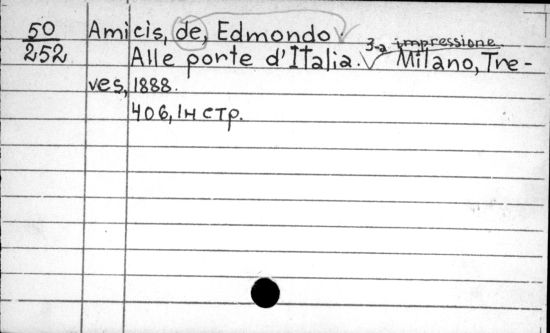 50
252
Amicis, de, Edmondo.
Alle porte d'Italia. 3-a impressione. Milano, Tre-
ves, 1888.
406, 1н стр.